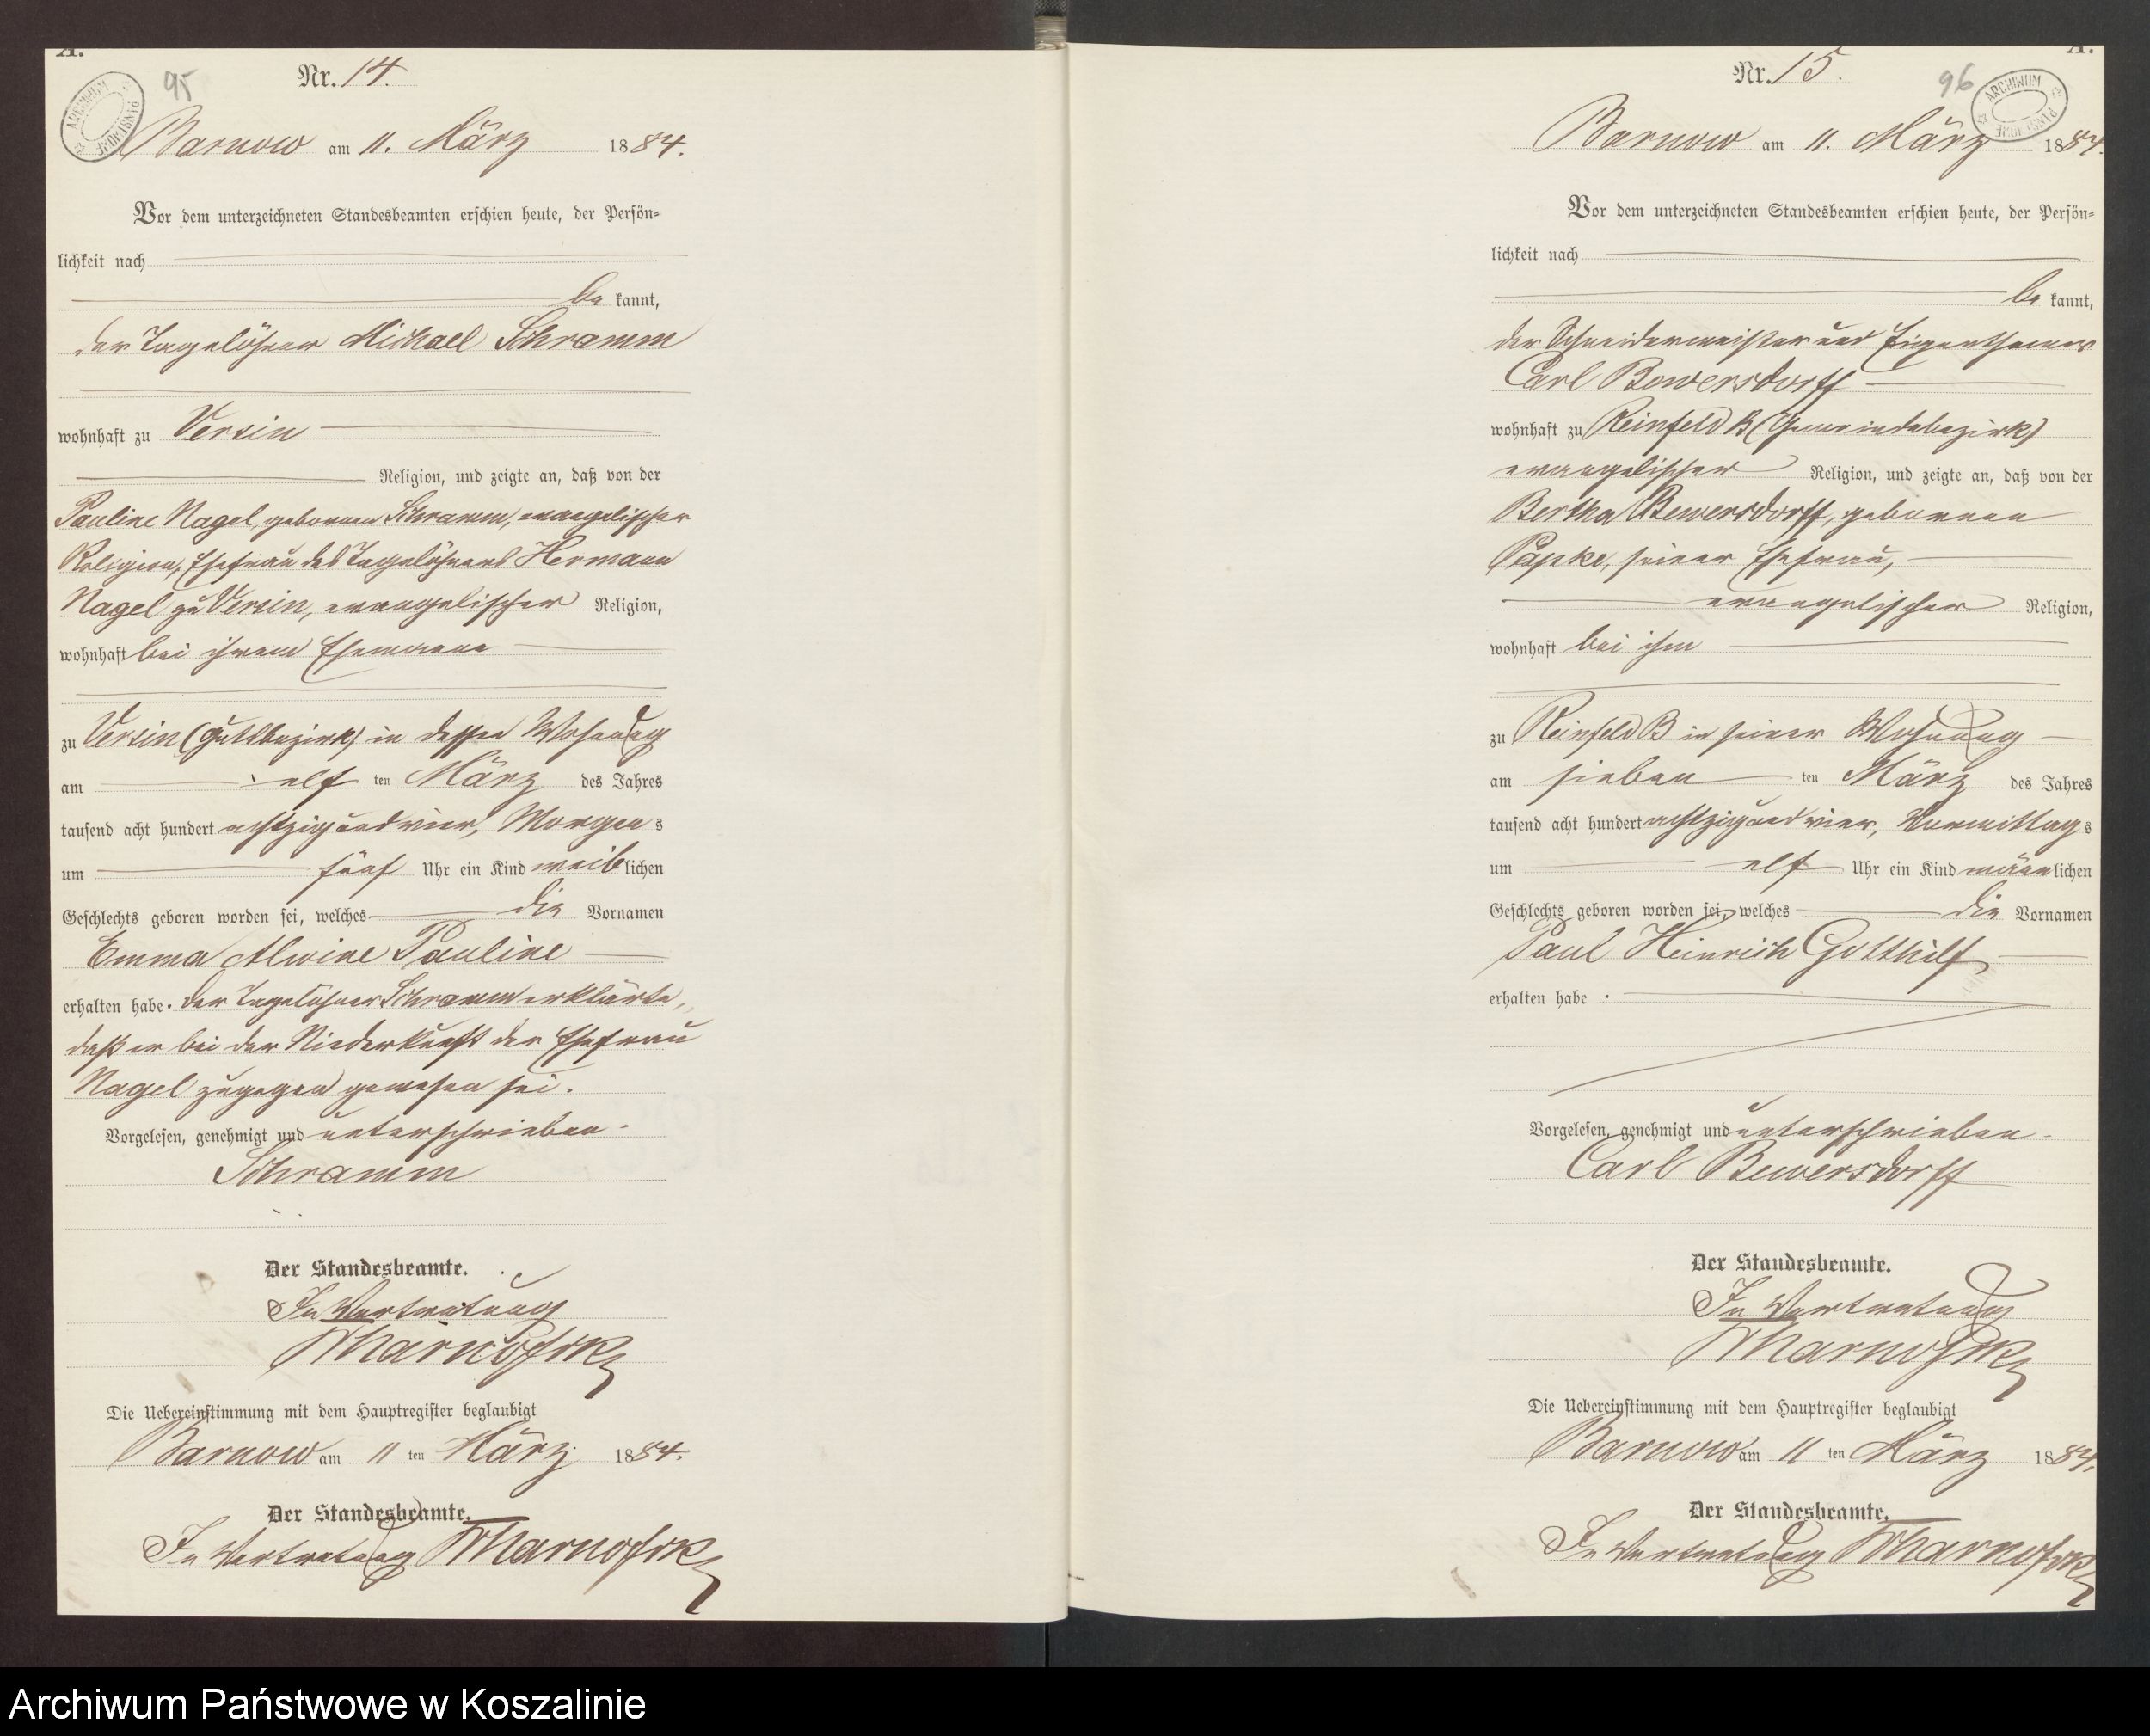 A.
95
Nr. 14.
ARCHIWUM PAŃSTWOWE
Barnow am 11. März 1884.
Vor dem unterzeichneten Standesbeamten erschien heute, der Persön-
lichkeit nach
be kannt,
der Tagelöhner Michael Schramm
wohnhaft zu Versin
Religion, und zeigte an, daß von der
Pauline Nagel, geborenen Schramm, evangelischer
Religion, Ehefrau des Tagelöhners Hermann
Nagel zu Versin, evangelischer Religion,
wohnhaft bei ihrem Ehemanne
zu Versin (Gutsbezirk) in dessen Wohnung
am elf ten März des Jahres
tausend acht hundert achtzig und vier, Morgens
um fünf Uhr ein Kind weiblichen
Geschlechts geboren worden sei, welches die Vornamen
Emma Alwine Pauline
erhalten habe. Der Tagelöhner Schramm erklärte,
daß er bei der Niederkunft der Ehefrau
Nagel zugegen gewesen sei.
Vorgelesen, genehmigt und unterschrieben.
Schramm
Der Standesbeamte.
In Vertretung
Die Uebereinstimmung mit dem Hauptregister beglaubigt
Barnow am 11 ten März 1884.
Der Standesbeamte.
In Vertretung
A.
Nr. 15.
96
ARCHIWUM PAŃSTWOWE
Barnow am 11. März 1884.
Vor dem unterzeichneten Standesbeamten erschien heute, der Persön-
lichkeit nach
be kannt,
der Schneidermeister und Eigenthümer
Carl Bewersdorff
wohnhaft zu Reinfeld B (Gemeindebezirk)
evangelischer Religion, und zeigte an, daß von der
Bertha Bewersdorff, geborenen
Papke, seiner Ehefrau,
evangelischer Religion,
wohnhaft bei ihm
zu Reinfeld B in seiner Wohnung
am sieben ten März des Jahres
tausend acht hundert achtzig und vier, Vormittags
um elf Uhr ein Kind männlichen
Geschlechts geboren worden sei, welches die Vornamen
Paul Heinrich Gotthilf
erhalten habe.
Vorgelesen, genehmigt und unterschrieben.
Carl Bewersdorff
Der Standesbeamte.
In Vertretung
Die Uebereinstimmung mit dem Hauptregister beglaubigt
Barnow am 11 ten März 1884.
Der Standesbeamte.
In Vertretung
Archiwum Państwowe w Koszalinie